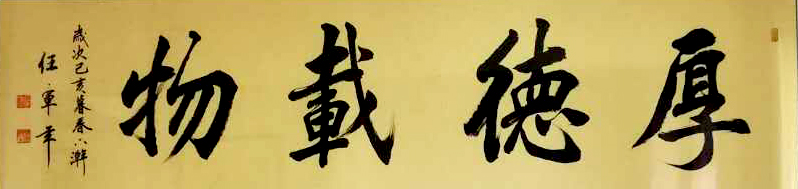 厚德載物
歲次己亥暮春小瀚
任軍